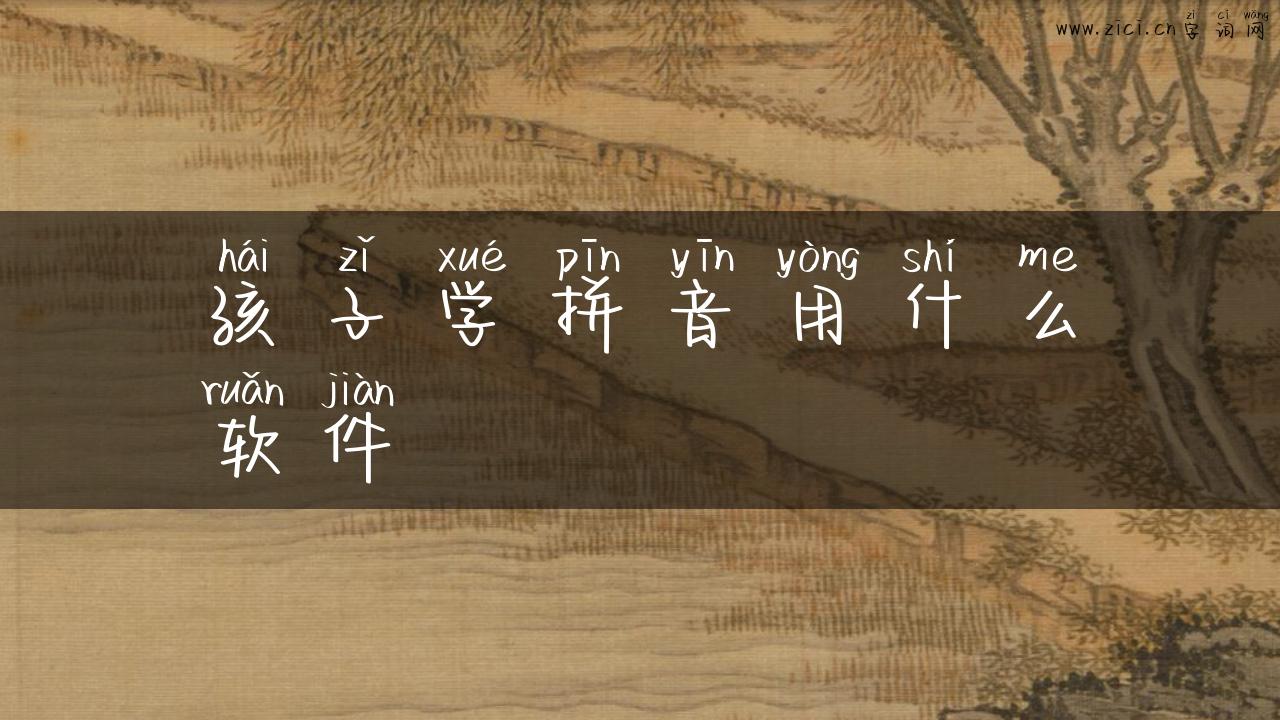 zì cí wǎng
www.zici.cn 字 词 网
hái zǐ xué pīn yīn yòng shí me
孩 子 学 拼 音 用 什 么
ruǎn jiàn
软 件